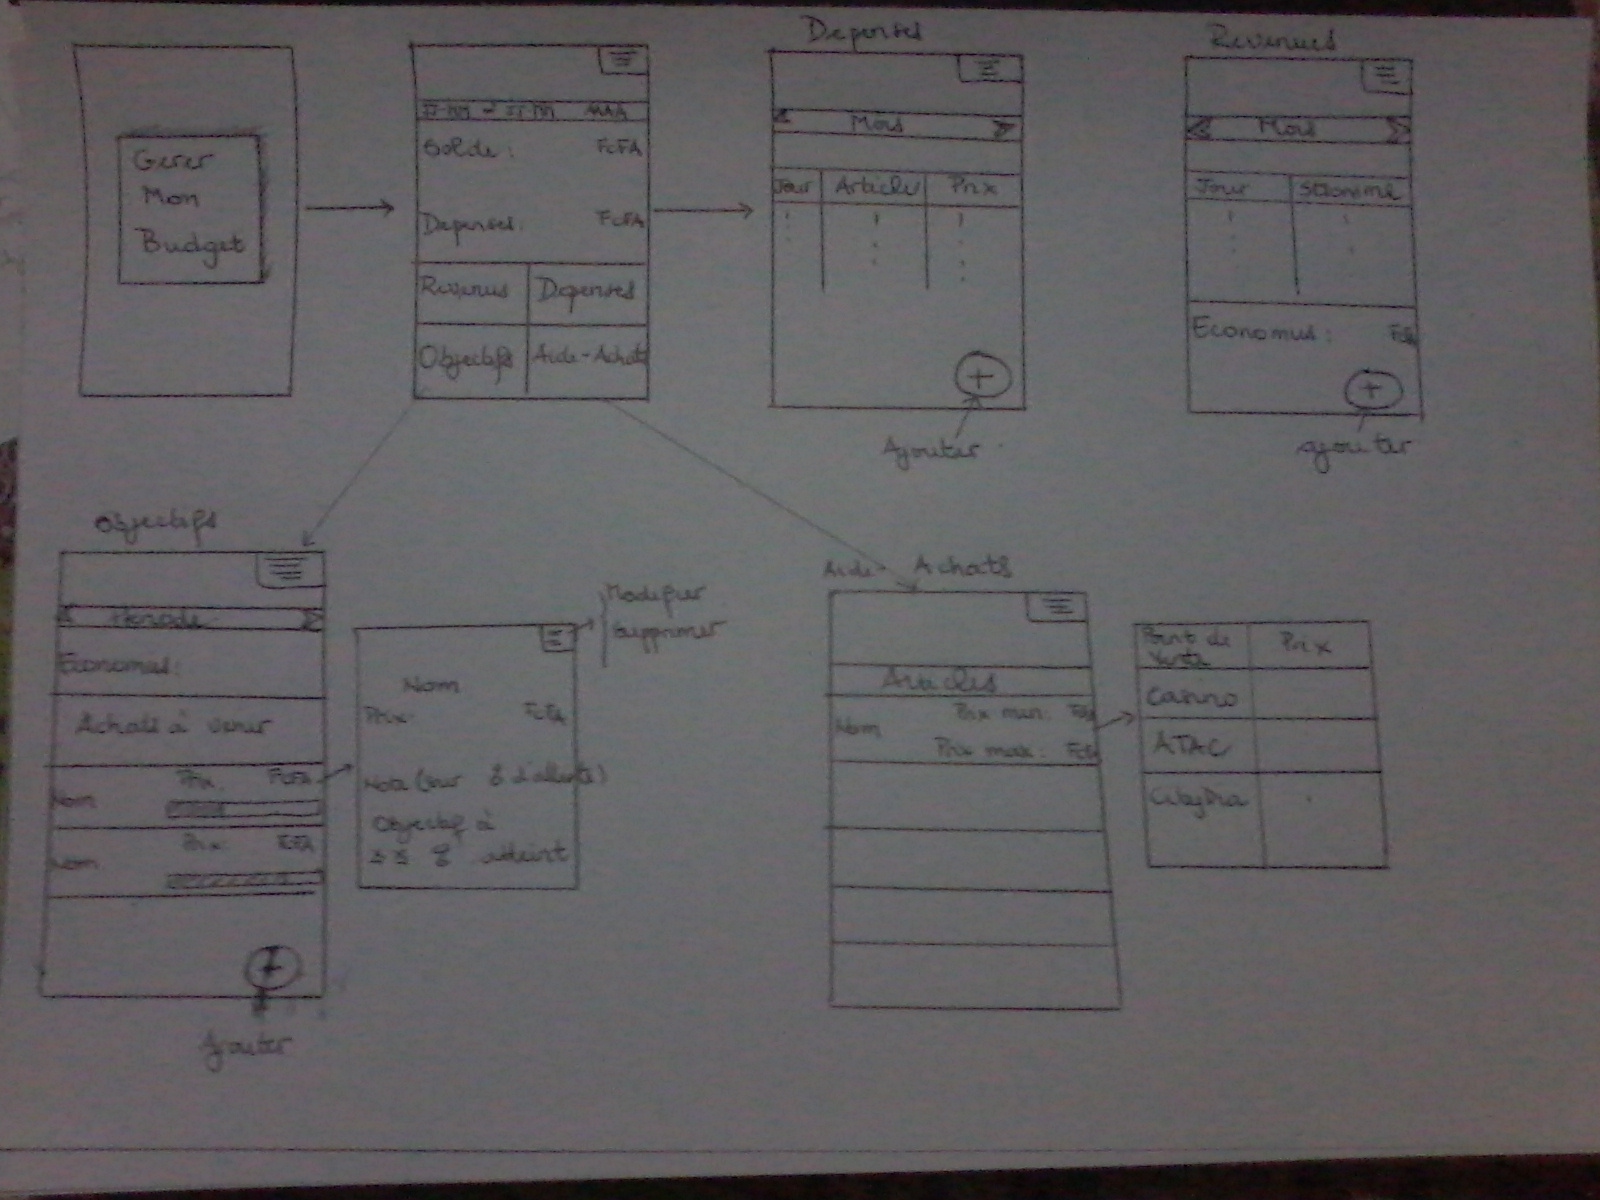 Gerer
Mon
Budget
JJ-MM - JJ MM AAAA
Solde : FCFA
Depenses : FCFA
Revenus Depenses
Objectifs Aide-Achats
Depenses
Mois
Jour Article Prix
+
Ajouter
Revenues
Mois
Jour
Economies : FCFA
+
ajouter
Objectifs
Periode
Economies :
Achats à venir
Prix FCFA
Nom
Prix FCFA
Nom
+
Ajouter
Modifier
Supprimer
Nom
Prix : FCFA
Nota (sur % d'atteinte)
Objectif à
% atteint
Aide- Achats
Articles
Nom Prix min : FCFA
Prix max : FCFA
Point de Vente Prix
Casino
ATAC
CityDia